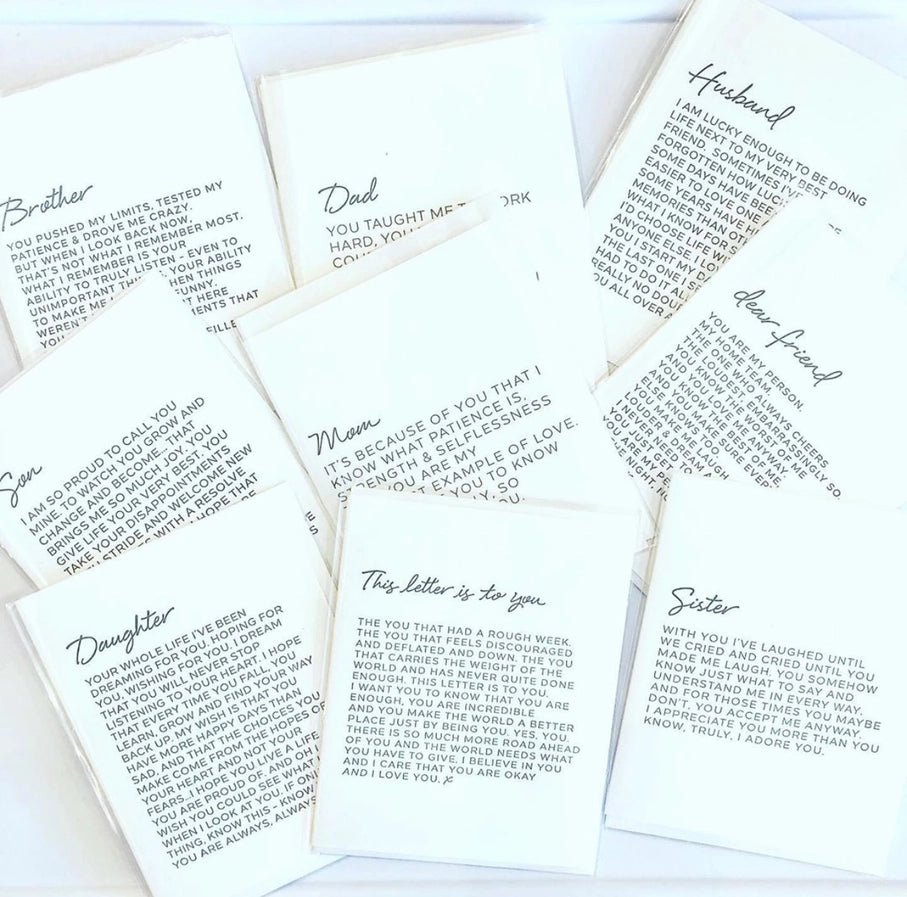 Brother
YOU PUSHED MY LIMITS, TESTED MY
PATIENCE & DROVE ME CRAZY.
BUT WHEN I LOOK BACK NOW,
THAT'S NOT WHAT I REMEMBER MOST.
WHAT I REMEMBER IS YOUR
ABILITY TO TRULY LISTEN - EVEN TO
UNIMPORTANT YOUR ABILITY
TO MAKE ME WHEN THINGS
WEREN'T FUNNY.
HERE
THAT
Dad
YOU TAUGHT ME TO WORK
HARD, YOU
Husband
I AM LUCKY ENOUGH TO BE DOING
LIFE NEXT TO MY VERY BEST
FRIEND. SOMETIMES I'VE
FORGOTTEN HOW
SOME DAYS HAVE BEEN
EASIER TO LOVE ONE
SOME YEARS HAVE
MEMORIES THAN
WHAT I KNOW FOR
I'D CHOOSE LIFE
ANYONE ELSE. I
YOU I START MY
THE LAST ONE I
HAD TO DO IT
REALLY NO
YOU ALL OVER
dear friend
YOU ARE MY PERSON.
MY HOME TEAM.
THE ONE WHO ALWAYS CHEERS
THE LOUDEST, EMBARRASSINGLY SO.
YOU KNOW THE WORST OF ME
AND YOU LOVE ME ANYWAY.
YOU MAKE BEST
AND YOU
ELSE KNOWS TOO.
LOUDER
I NEVER
YOU JUST
YOU ARE MY
Son
I AM SO PROUD TO CALL YOU
MINE. TO WATCH YOU GROW AND
CHANGE AND BECOME... THAT
BRINGS ME SO MUCH JOY. YOU
GIVE LIFE YOUR VERY BEST. YOU
TAKE YOUR DISAPPOINTMENTS
STRIDE AND WELCOME NEW
WITH A RESOLVE
HOPE THAT
Mom
IT'S BECAUSE OF YOU THAT I
KNOW WHAT PATIENCE IS,
STRENGTH & SELFLESSNESS
YOU ARE MY
EXAMPLE OF LOVE.
YOU TO KNOW
YOU, SO
Daughter
YOUR WHOLE LIFE I'VE BEEN
DREAMING FOR YOU, HOPING FOR
YOU, WISHING FOR YOU. I DREAM
THAT YOU WILL NEVER STOP
LISTENING TO YOUR HEART. I HOPE
THAT EVERY TIME YOU FALL, YOU
LEARN, GROW AND FIND YOUR WAY
BACK UP. MY WISH IS THAT YOU
HAVE MORE HAPPY DAYS THAN
SAD, AND THAT THE CHOICES YOU
MAKE COME FROM THE HOPES OF
YOUR HEART AND NOT YOUR
FEARS...I HOPE YOU LIVE A LIFE
YOU ARE PROUD OF. AND OH I
WISH YOU COULD SEE WHAT
WHEN I LOOK AT YOU. IF
THING, KNOW THIS - KNOW
YOU ARE ALWAYS, ALWAYS
This letter is to you
THE YOU THAT HAD A ROUGH WEEK.
THE YOU THAT FEELS DISCOURAGED
AND DEFLATED AND DOWN. THE YOU
THAT CARRIES THE WEIGHT OF THE
WORLD AND HAS NEVER QUITE DONE
ENOUGH. THIS LETTER IS TO YOU.
I WANT YOU TO KNOW THAT YOU ARE
ENOUGH, YOU ARE INCREDIBLE
AND YOU MAKE THE WORLD A BETTER
PLACE JUST BY BEING YOU. YES, YOU.
THERE IS SO MUCH MORE ROAD AHEAD
OF YOU AND THE WORLD NEEDS WHAT
YOU HAVE TO GIVE. I BELIEVE IN YOU
AND I CARE THAT YOU ARE OKAY
AND I LOVE YOU. X
Sister
WITH YOU I'VE LAUGHED UNTIL
WE CRIED AND CRIED UNTIL YOU
MADE ME LAUGH. YOU SOMEHOW
KNOW JUST WHAT TO SAY AND
UNDERSTAND ME IN EVERY WAY.
AND FOR THOSE TIMES YOU MAYBE
DON'T, YOU ACCEPT ME ANYWAY.
I APPRECIATE YOU MORE THAN YOU
KNOW. TRULY, I ADORE YOU.